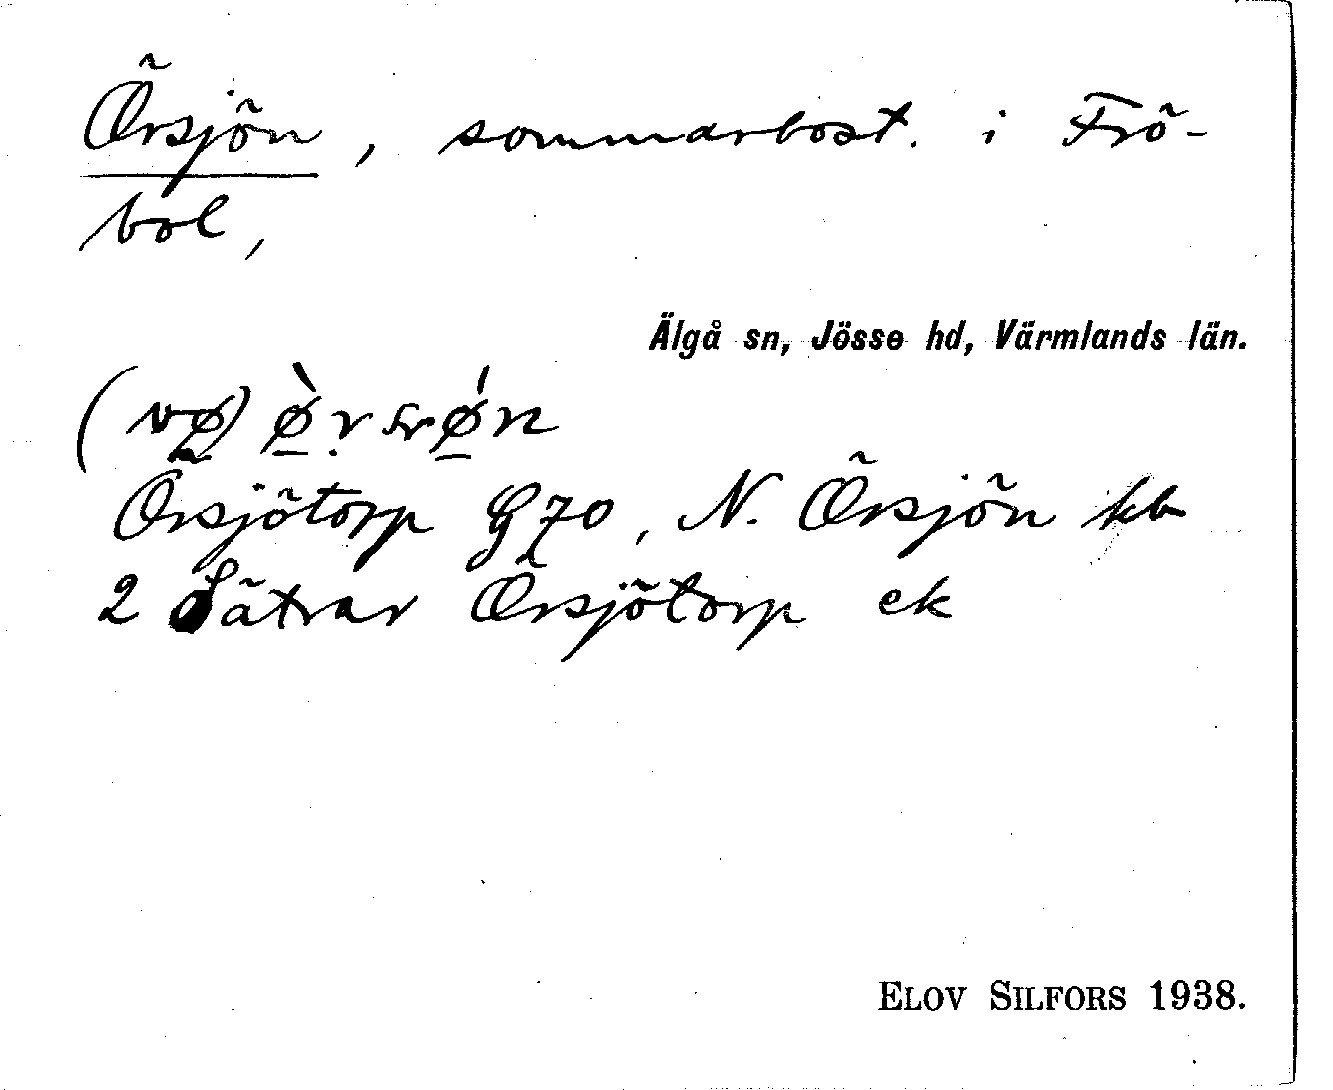 Örsjön, sommarbost. i Frö-
bol,
Älgå sn, Jösse hd, Värmlands län.
(vø)
Örsjötorp G70, N. Örsjön kb
2 Sätrar Örsjötorp ek
ELOV SILFORS 1938.